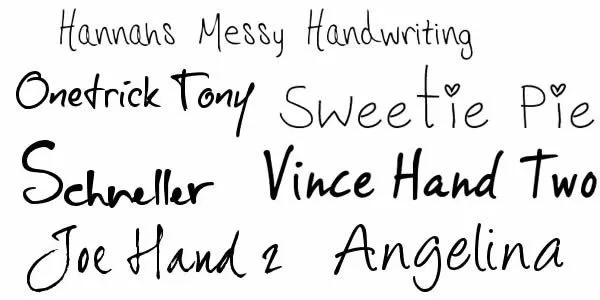 Hannahs Messy Handwriting
Onetrick Tony
Sweetie Pie
Schneller
Vince Hand Two
Joe Hand 2
Angelina